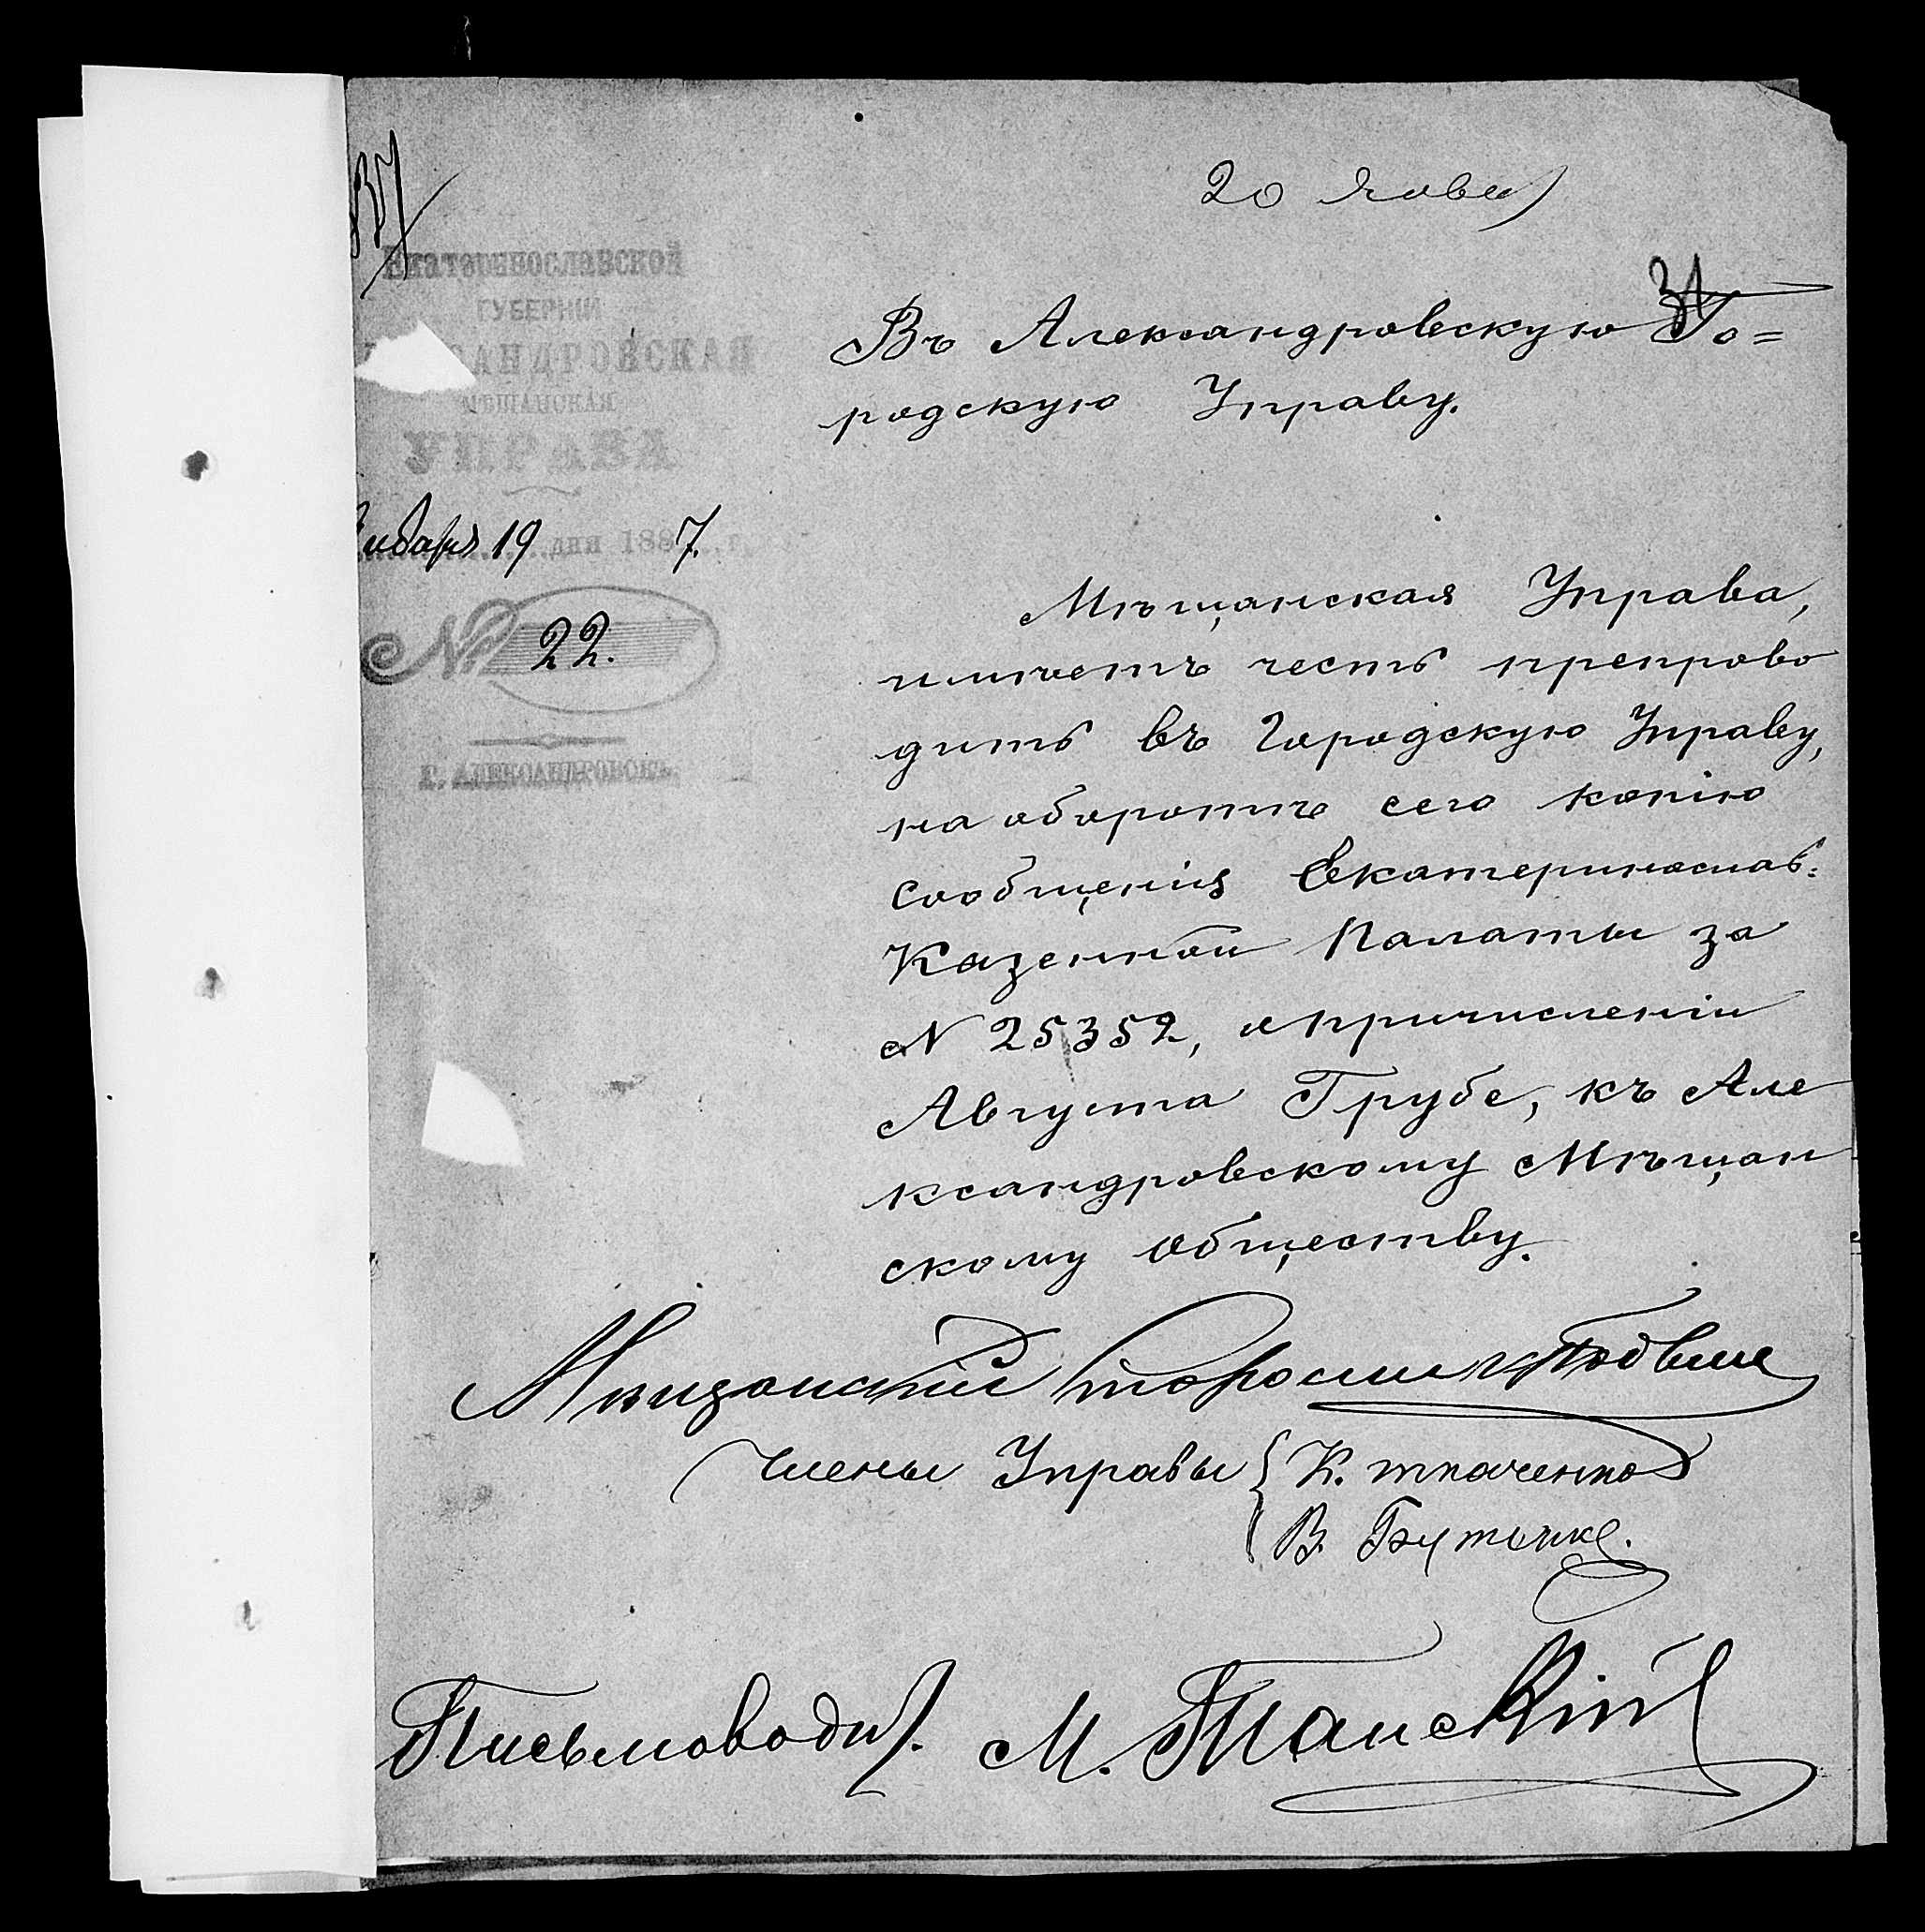 20 Янва
Екатеринославской
ГУБЕРНІИ
АНДРОВСКАЯ
МѢЩАНСКАЯ
УПРАВА
нваря 19 дня 1887. г.
№ 22.
Г. АЛЕКСАНДРОВСКЪ.
Въ Александровскую Го=
родскую Управу.
Мѣщанская Управа,
имѣетъ честь препрово
дить въ Городскую Управу,
на оборотѣ сего копію
сообщенія Екатеринослав:
Казенной Палаты за
№ 25352, о причисленіи
Августа Грубе, къ Але
ксандровскому Мѣщан
скому обществу.
Мѣщанскій Староста
Члены Управы { К. Ткаченко
В. Бутенко.
Письмоводи. М. Танскій